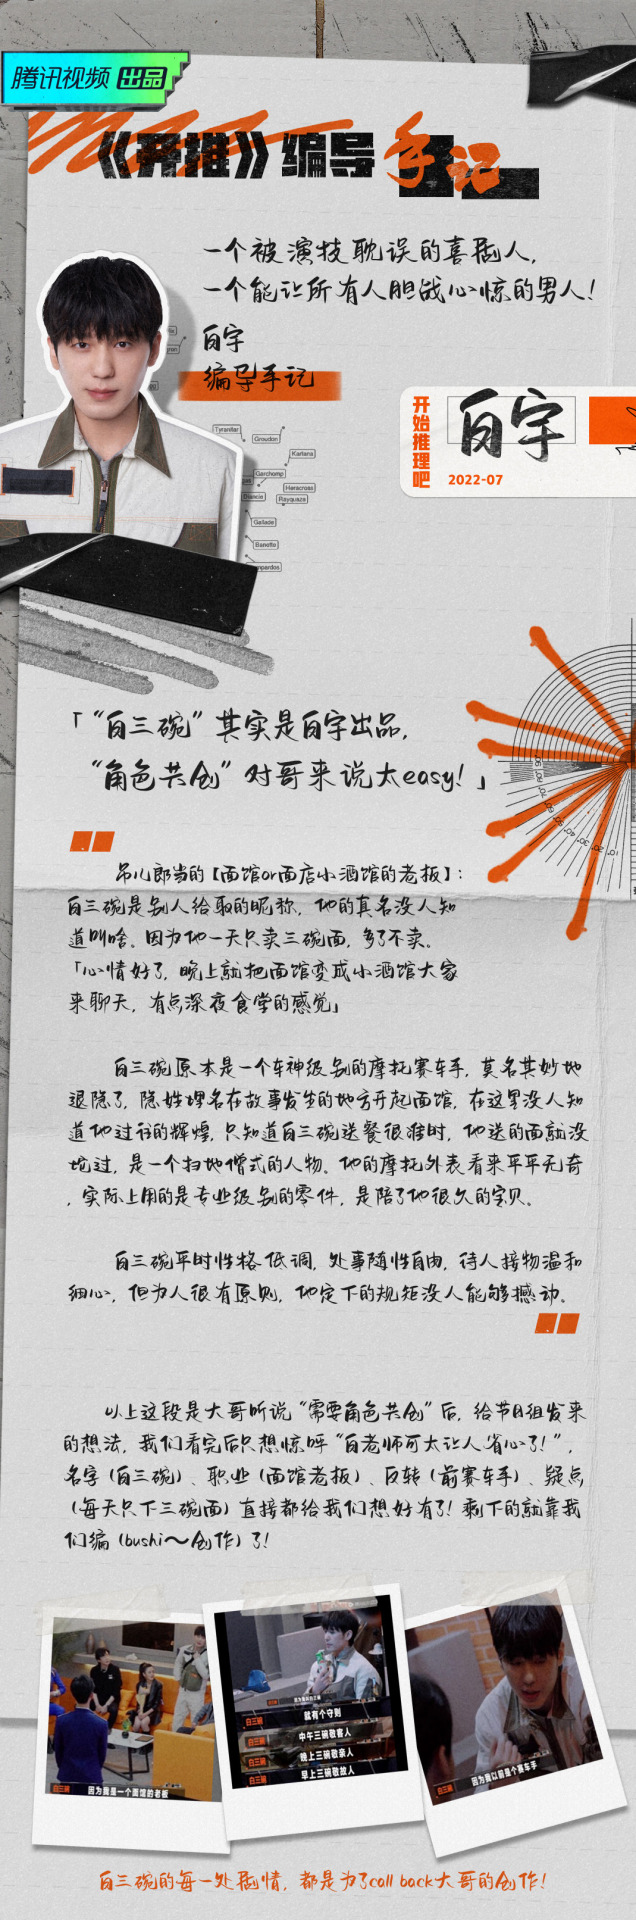 腾讯视频 出品
《开推》编导手记
一个被演技耽误的喜剧人，
一个能让所有人胆战心惊的男人！
白宇
编导手记
开始推理吧
白宇
2022-07
Tyranitar
Groudon
Kartana
Garchomp
Heracross
Diancie
Rayquaza
Gallade
Banette
「“白三碗”其实是白宇出品，
“角色共创”对哥来说太easy！」
吊儿郎当的【面馆or面店小酒馆的老板】：
白三碗是别人给取的昵称，他的真名没人知
道叫啥。因为他一天只卖三碗面，多了不卖。
「心情好了，晚上就把面馆变成小酒馆大家
来聊天，有点深夜食堂的感觉」
白三碗原本是一个车神级别的摩托赛车手，莫名其妙地
退隐了，隐姓埋名在故事发生的地方开起面馆，在这里没人知
道他过往的辉煌，只知道白三碗送餐很准时，他送的面就没
坨过，是一个扫地僧式的人物。他的摩托外表看来平平无奇
，实际上用的是专业级别的零件，是陪了他很久的宝贝。
白三碗平时性格低调，处事随性自由，待人接物温和
细心，但为人很有原则，他定下的规矩没人能够撼动。
以上这段是大哥听说“需要角色共创”后，给节目组发来
的想法，我们看完后只想惊呼“白老师可太让人省心了！”，
名字（白三碗）、职业（面馆老板）、反转（前赛车手）、疑点
（每天只下三碗面）直接都给我们想好有了！剩下的就靠我
们编（bushi～创作）了！
白三碗 因为我是一个面馆的老板
因为我吴白三碗
就有个守则
白三碗 中午三碗敬客人
白三碗 晚上三碗敬亲人
白三碗 早上三碗敬故人
白三碗 因为我以前是个赛车手
白三碗的每一处剧情，都是为了call back大哥的创作！